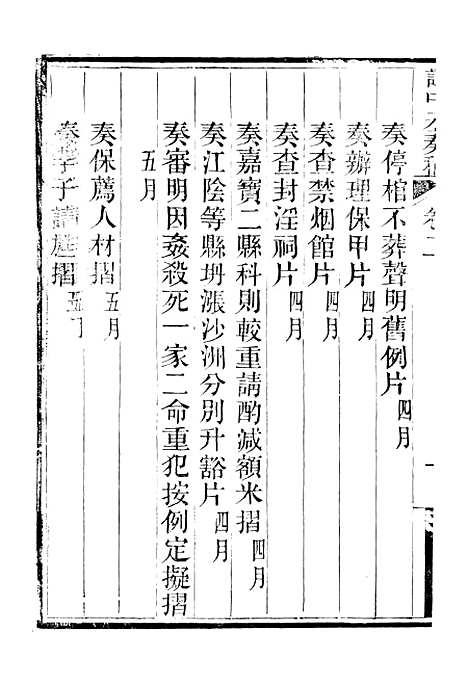 奏停棺不葬聲明舊例片四月
奏辦理保甲片四月
奏查禁烟館片四月
奏查封淫祠片四月
奏嘉寶二縣科則較重請酌減額米摺四月
奏江陰等縣坍漲沙洲分別升豁片四月
奏審明因姦殺死一家二命重犯按例定擬摺
五月
奏保薦人材摺五月
奏孝子請旌摺五月
卷二
一